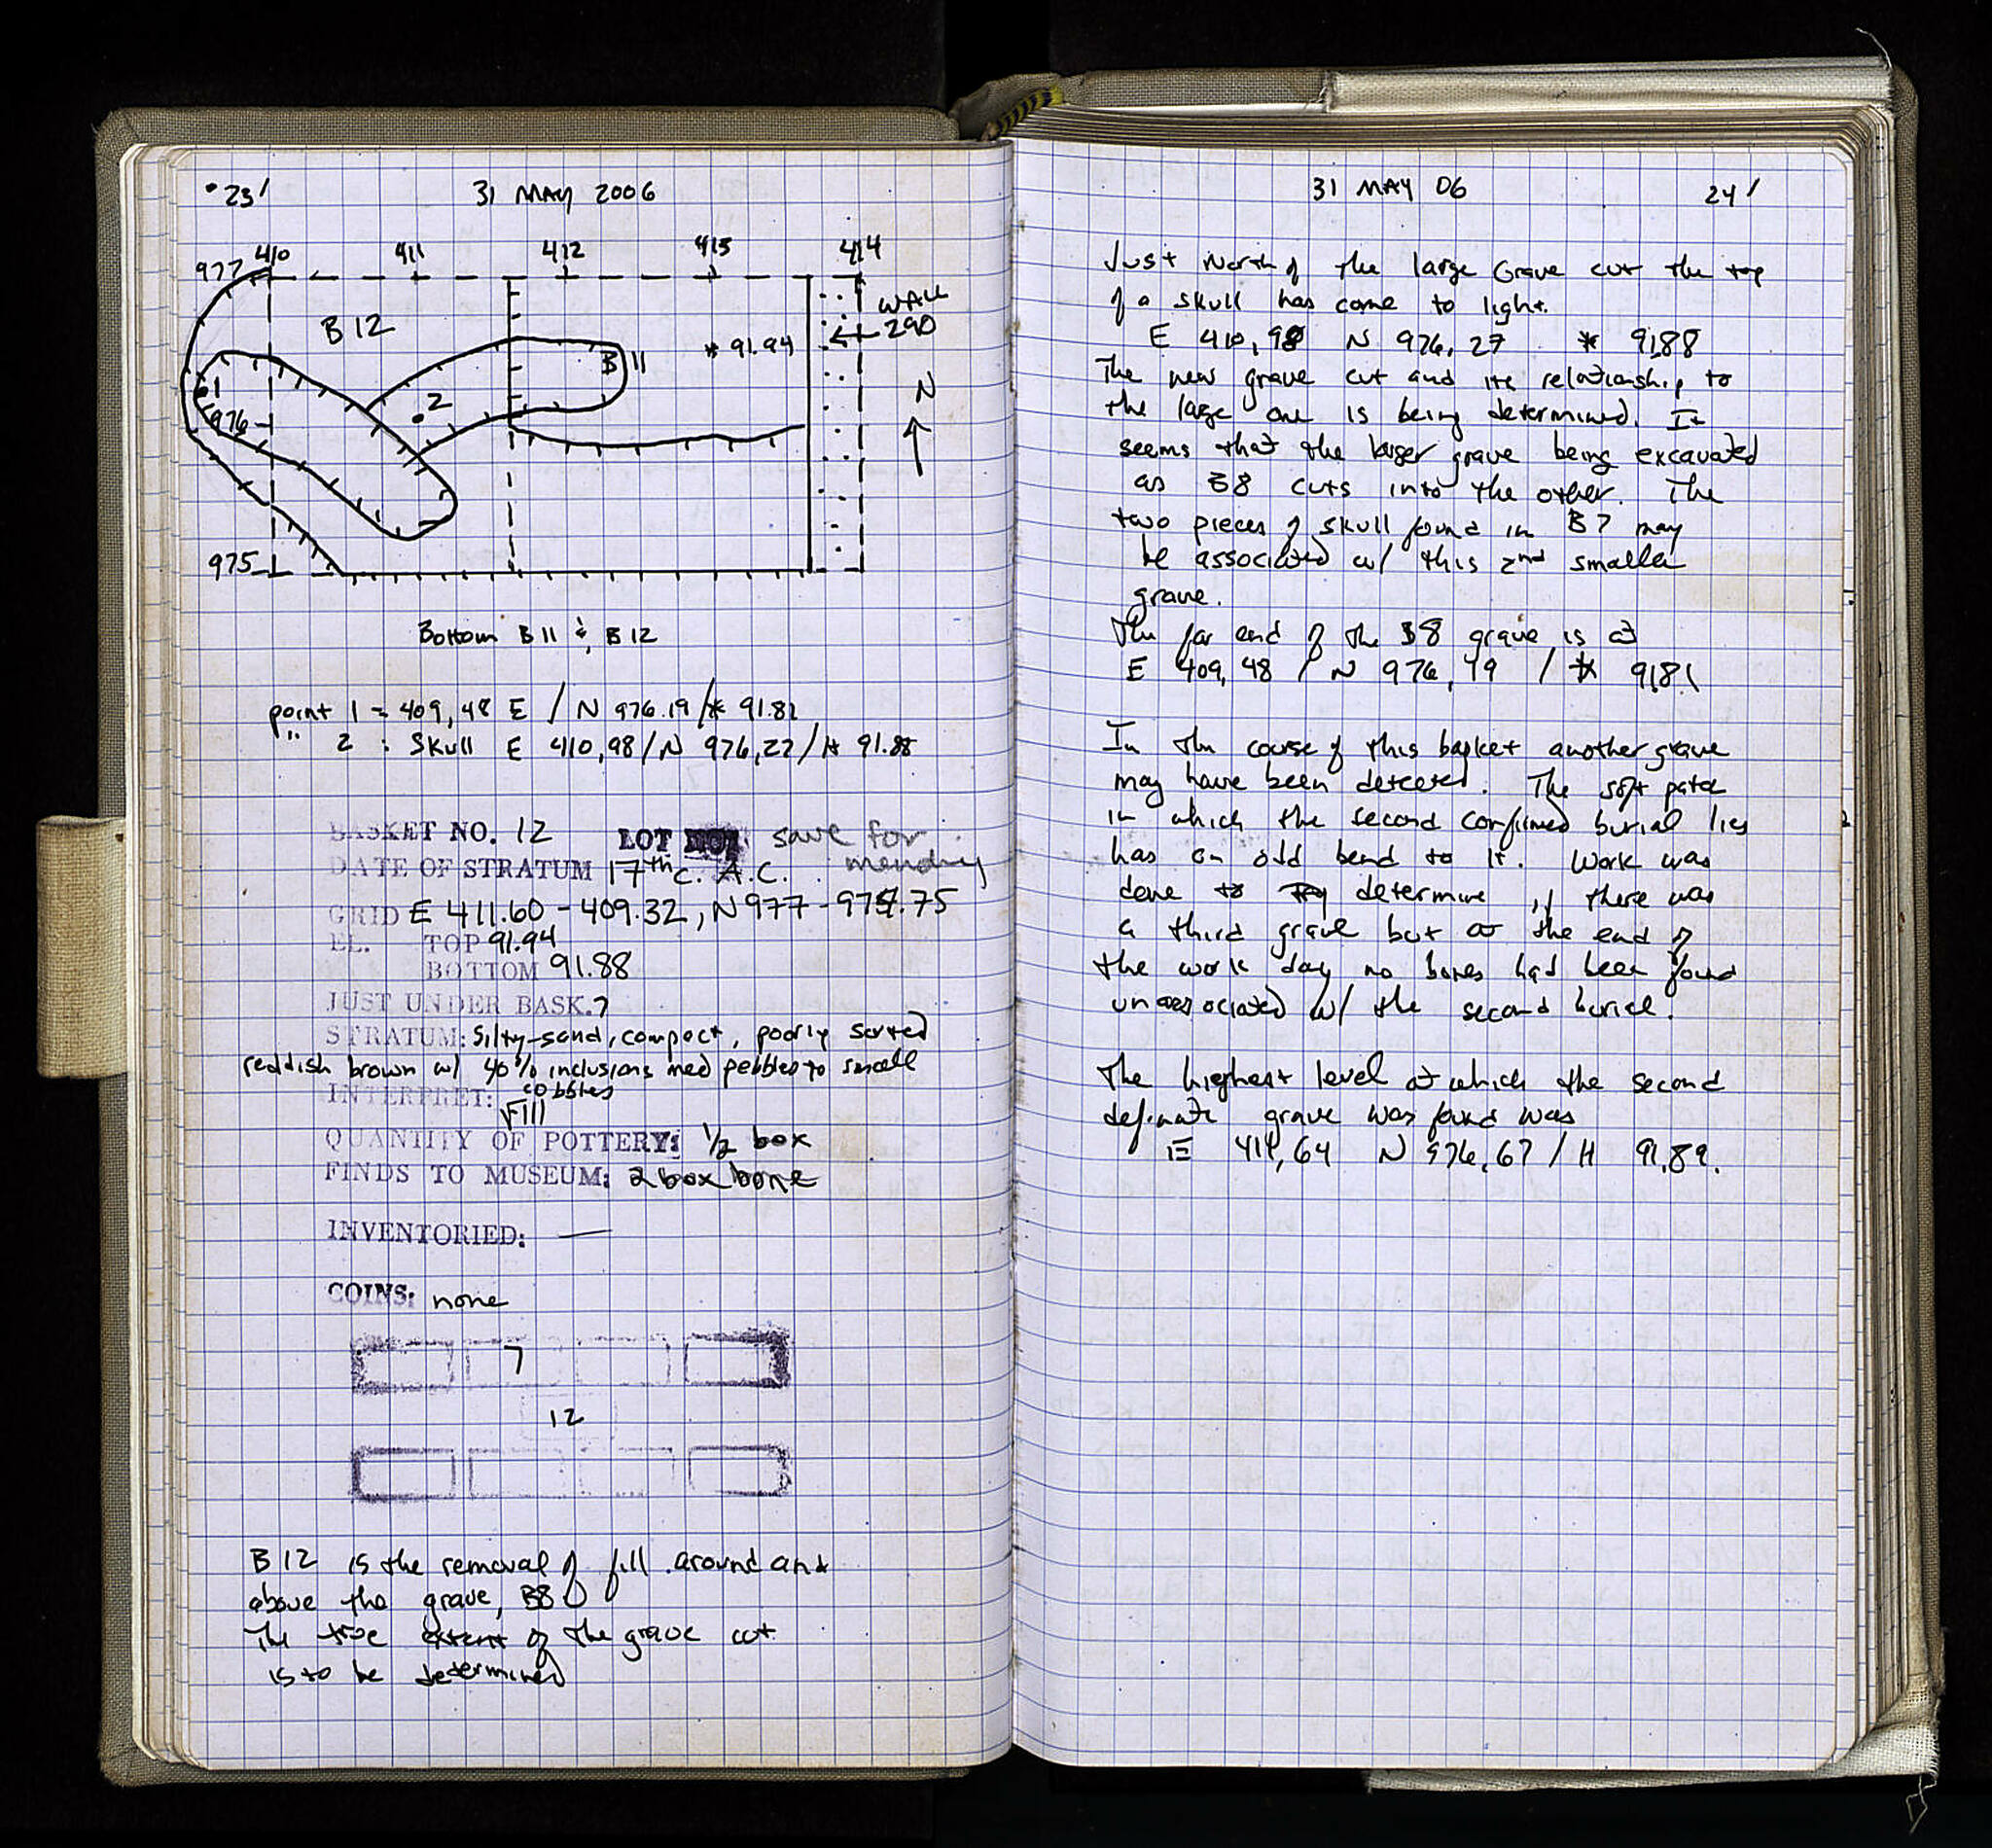 23/
31 MAY 2006
410 411 412 413 414
977
B 12
B 11
* 91.94
WALL
290
1
2
976
N
975
Bottom B 11 & B 12
point 1 = 409,48 E / N 976.19 / * 91.81
" 2 : Skull E 410,98 / N 976,27 / H 91.88
BASKET NO. 12 LOT save for
mending
DATE OF STRATUM 17th c. A.C.
GRID E 411.60 - 409.32, N 977 - 974.75
EL. TOP 91.94
BOTTOM 91.88
JUST UNDER BASK. 7
STRATUM: Silty-sand, compact, poorly sorted
reddish brown w/ 40% inclusions med pebbles to small
cobbles
INTERPRET: Fill
QUANTITY OF POTTERY: 1/2 box
FINDS TO MUSEUM: 2 box bone
INVENTORIED: —
COINS: none
7
12
B 12 is the removal of fill around and
above the grave, B8
The true extent of the grave cut
is to be determined
31 MAY 06
24/
Just North of the large Grave cut the top
of a skull has come to light.
E 410,98 N 976,27 * 91.88
The new grave cut and its relationship to
the large one is being determined. It
seems that the larger grave being excavated
as B8 cuts into the other. The
two pieces of skull found in B7 may
be associated w/ this 2nd smaller
grave.
The far end of the B8 grave is at
E 409,48 / N 976,19 / * 91.81
In the course of this basket another grave
may have been detected. The soft patch
in which the second confirmed burial lies
has an odd bend to it. Work was
done to try determine if there was
a third grave but at the end of
the work day no bones had been found
unassociated w/ the second burial.
The highest level at which the second
definate grave was found was
E 411,64 N 976,67 / H 91,89.